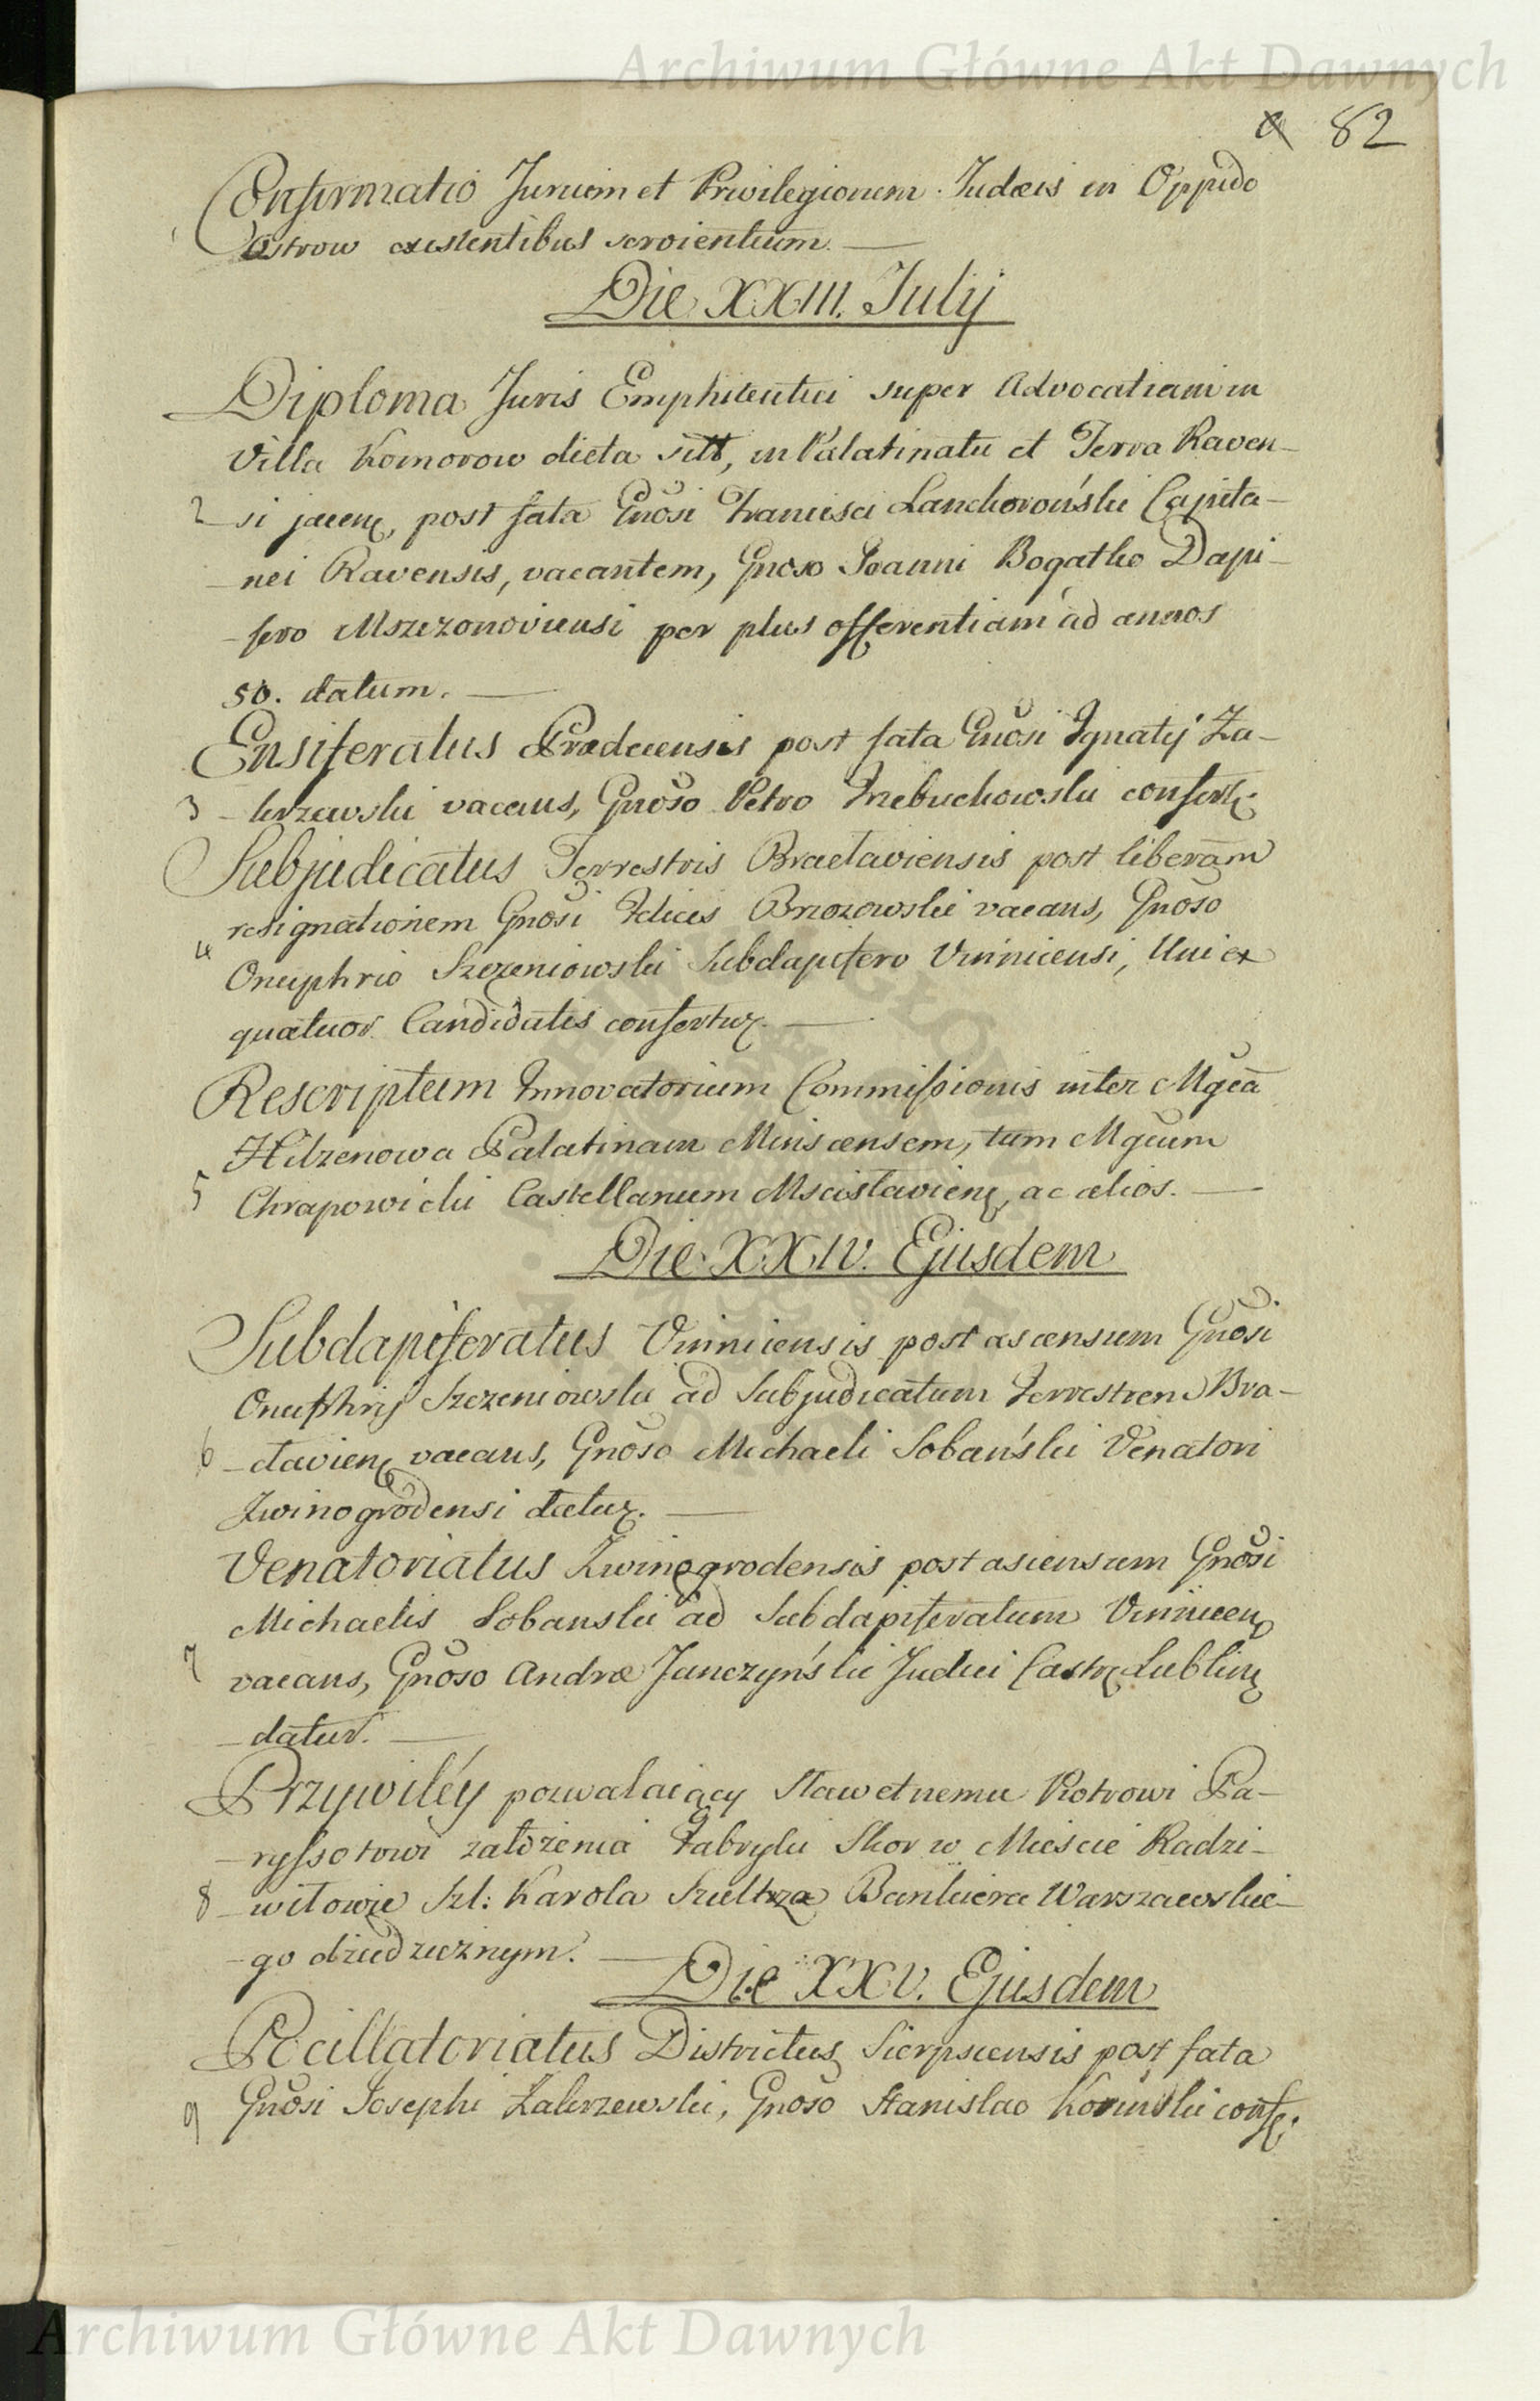 Archiwum Główne Akt Dawnych
82
Confirmatio Jurium et Privilegiorum Judæis in Oppido
1 Ostrow existentibus servientium.
Die XXIII. Julij
Diploma Juris Emphiteutici super Advocatiam in
Villa Komorow dicta sitt, in Palatinatu et Terra Raven-
2 -si jacen, post fata Gnosi Francisci Lanckoroński Capita-
-nei Ravensis, vacantem, Gnoso Joanni Bogatko Dapi-
-fero Mszczonoviensi per plus offerentiam ad annos
50. datum.
Ensiferatus Grodecensis post fata Gnosi Ignatij Za-
3 -krzewski vacans, Gnoso Petro Trzebuchowski confert.
Subjudicatus Terrestris Braclaviensis post liberam
resignationem Gnosi Felicis Brzozowski vacans, Gnoso
4 Onuphrio Szczeniowski Subdapifero Vinnicensi, Uni ex
quatuor Candidatis confertur.
Rescriptum Innovatorium Commissionis inter Mgcã
Hilzenowa Palatinam Minscensem, tum Mgcum
5 Chrapowicki Castellanum Mscislavien, ac alios.
Die XXIV. Ejusdem
Subdapiferatus Vinnicensis post ascensum Gnosi
Onuphrij Szczeniowski ad Subjudicatum Terrestrem Bra-
6 -clavien vacans, Gnoso Michaeli Sobański Venatori
Zwinogrodensi datur.
Venatoriatus Zwinogrodensis post ascensum Gnosi
Michaelis Sobanski ad Subdapiferatum Vinnicen
7 vacans, Gnoso Andræ Janczyński Judici Castr Lublin
-datur.
Przywiléy pozwalaiący Sławetnemu Piotrowi Pa-
-ryssotowi załozenia Fabryki Skor w Mieście Radzi-
8 -wiłowie Szl: Karola Szultza Bankiera Warszawskie-
-go dziedzicznym.
Die XXV. Ejusdem
Pocillatoriatus Districtus Sierpscensis post fata
9 Gnosi Josephi Zakrzewski, Gnoso Stanislao conf.
Archiwum Główne Akt Dawnych